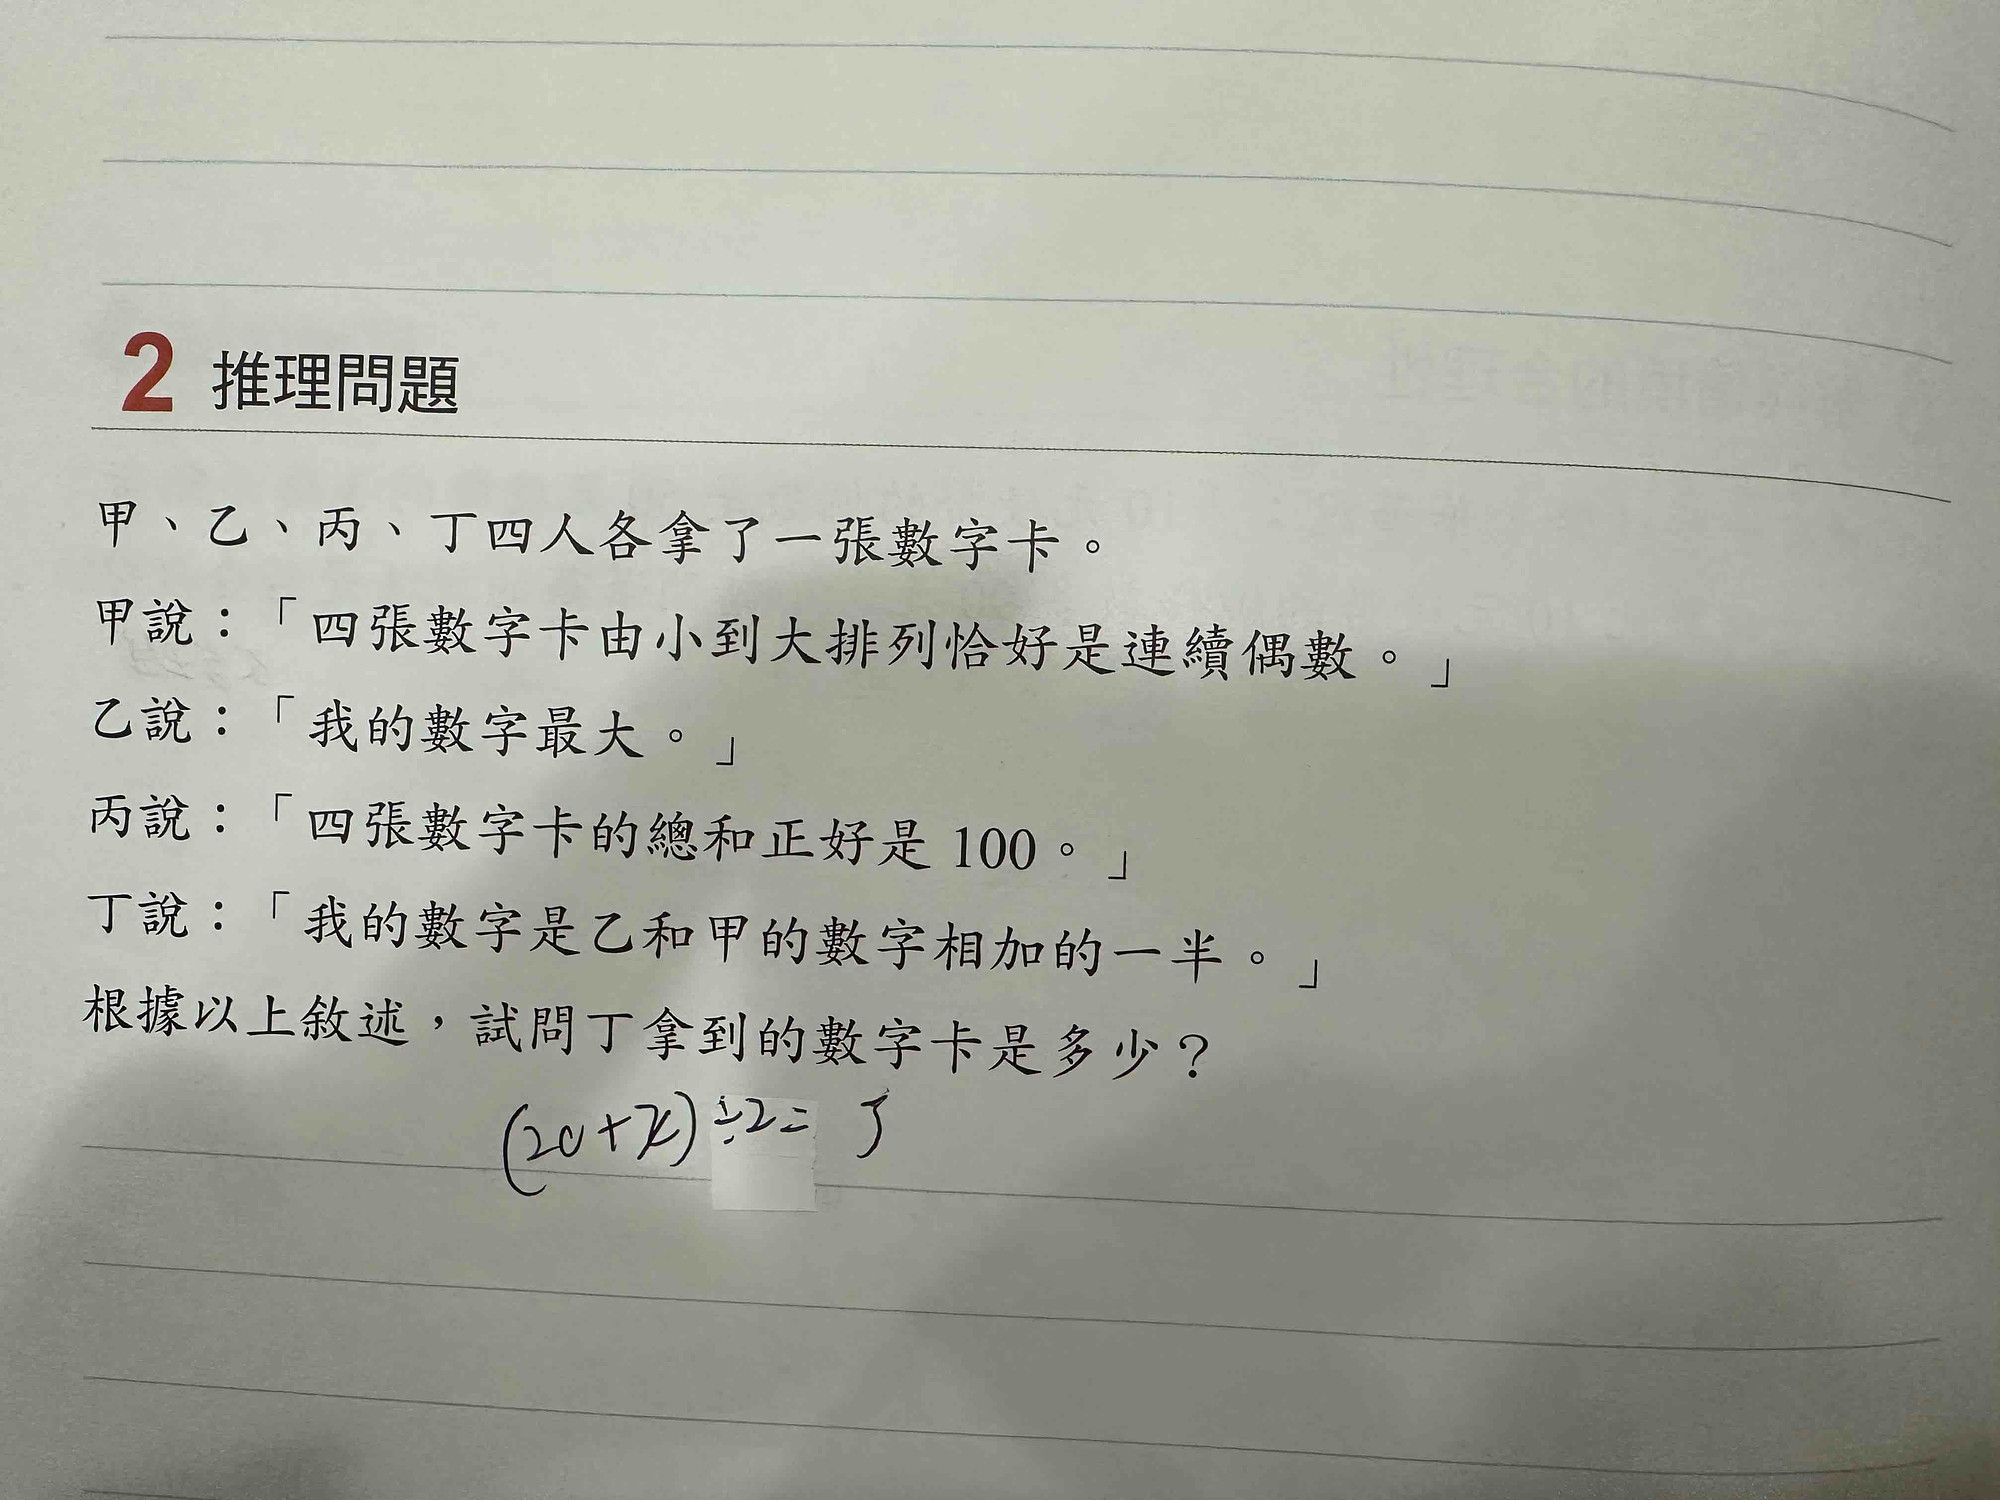 2 推理問題
甲、乙、丙、丁四人各拿了一張數字卡。
甲說：「四張數字卡由小到大排列恰好是連續偶數。」
乙說：「我的數字最大。」
丙說：「四張數字卡的總和正好是 100。」
丁說：「我的數字是乙和甲的數字相加的一半。」
根據以上敘述，試問丁拿到的數字卡是多少？
÷2=